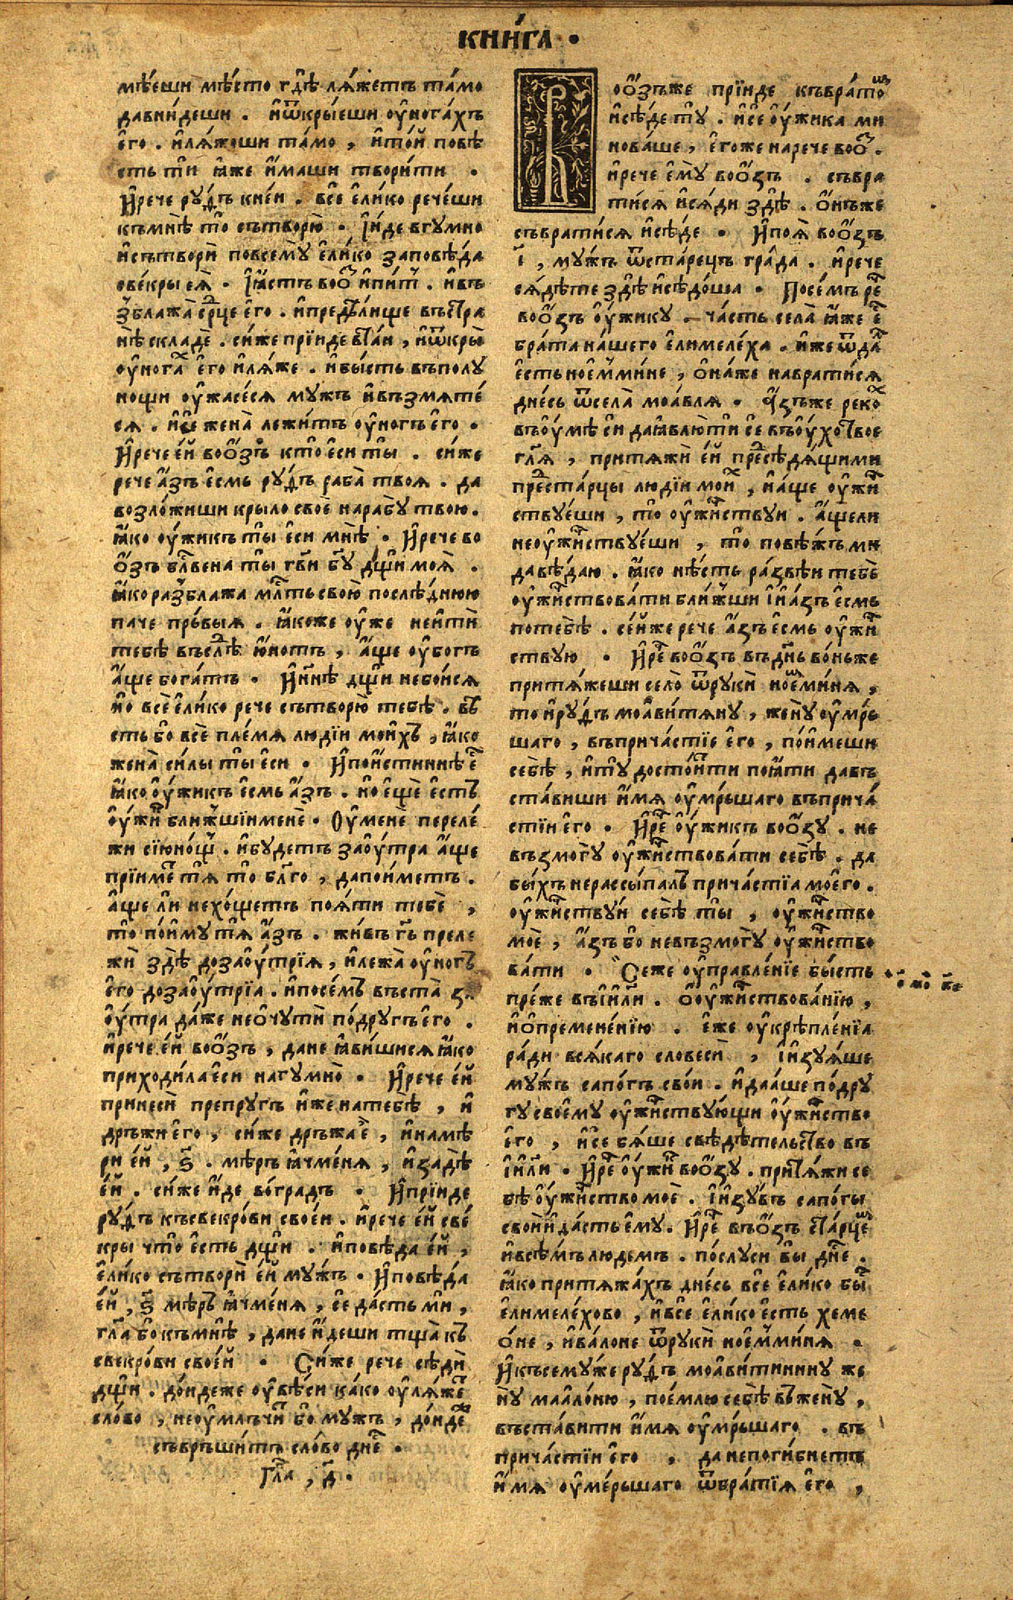 КНИ́ГА ·
мѣ́еши мѣ́сто гдѣ̀ ля́жетъ та́мо
да вни́деши . и҆ ѿкры́еши ѹ҆ нога́хъ
е҆го̀ . и҆ ля́жоши та́мо , и҆ то́й повѣ́
сть тѝ ꙗ҆́же и҆́маши твори́ти .
И҆ рече рꙋ́ѳъ к не́й . всѐ е҆ли́ко рече́ши
къ мнѣ̀ то̀ сътворю̀ . І҆ и҆́де в гꙋмно̀
и҆ сътворѝ по всемꙋ̀ е҆ли́ко заповѣ́да
свекры̀ е҆я̀ . І҆ ꙗ҆́стъ воо҆́з и҆ пи́т . и҆ въ
зблажа̀ срⷣце е҆го̀ . и҆ прейде лѣжє въ стра
нѣ̀ скла́де . си́же прїи́де втаи́ , и҆ ѿкры̀
ѹ҆ нога́х е҆го̀ и҆ ля́же . и҆ бы́сть в полꙋ
нощи ѹ҆жасе́ся мꙋ́жъ и҆ възмяте́
ся . и҆ сѐ жена̀ лежи́тъ ѹ҆ но́гъ е҆го̀ .
И҆ рече е҆́й воо҆́зъ кто̀ е҆сѝ ты̀ . си́же
рече а҆́зъ е҆́смь рꙋ́ѳъ раба̀ твоя̀ . да
возло́жиши крыло̀ своѐ на рабꙋ̀ твою̀ .
ꙗ҆́ко ѹ҆́жикъ ты̀ е҆сѝ мнѣ̀ . И҆ рече во
о҆́зъ блⷭ҇вена ты̀ гⷭ҇ви бг҃ꙋ дщѝ моя̀ .
ꙗ҆́ко разблажа̀ млⷭ҇ть свою̀ послѣ́днюю
паче пръ́выя . ꙗ҆́коже ѹ҆́же не и҆тѝ
тебѣ̀ въслѣ̀ю҆́нотъ , а҆́ще ѹ҆бо́гъ
а҆́ще бога́тъ . И҆ нн҃ѣ дщѝ не бо́йся
но̀ всѐ е҆ли́ко рече сътворю̀ тебѣ̀ . вѣ́
сть бо̀ всѐ пле́мя лю́дїи мои́хъ , ꙗ҆́ко
жена̀ си́лы ты̀ е҆сѝ . И҆ пои́стиннѣ е҆
ꙗ҆́ко ѹ҆́жикъ е҆́смь а҆́зъ . но̀ е҆щѐ е҆́стъ
ѹ҆́жик бли́жшїи менѐ . Оу҆ менѐ переле́
жи сїю̀ нощ . и҆ бꙋ́детъ зао́ѹтра а҆́ще
прїи́мет тя̀ то̀ бл҃го , да по́иметъ .
а҆́ще лѝ нехо́щетъ поя́ти тебѐ ,
то̀ поимꙋ̀ тя̀ а҆́зъ . жи́въ гⷭ҇ь преле
жѝ здѣ̀ дозао́ѹтрїя , и҆ лежа̀ ѹ҆ но́гъ
е҆го̀ дозао́ѹтрїа . и҆ посе́мъ въста̀ з
о́ѹтра да́же нео҆чꙋтѝ по́дрꙋгъ е҆го̀ .
и҆ рече е҆́й воо҆́зъ , да не ꙗ҆ви́шися ꙗ҆́ко
приходи́ла е҆сѝ на гꙋмно̀ . И҆ рече е҆́й
принесѝ препрꙋ́гъ и҆́же на тебѣ̀ , и҆
дръжѝ е҆го̀ , си́же дръжа̀ е҆ , и҆ намѣ́
ри е҆́й , ѕ҃ . мѣ́ръ ꙗ҆чме́ня , и҆ задѣ̀
е҆́й . си́же и҆́де во́градъ . И҆ прїи́де
рꙋ́ѳъ къ свекро́ви свое́и . и҆ рече е҆́й све́
кры что̀ е҆́сть дщѝ . и҆ повѣ́да е҆́й ,
е҆ли́ко сътворѝ е҆́й мꙋ́жъ . И҆ повѣ́да
е҆́й , ѕ҃ мѣ́ръ ꙗ҆чме́ня , сѐ да́сть мѝ ,
гл҃а бо̀ къ мнѣ̀ , да не и҆́деши тща̀ къ
свекро́ви свое́й . Си́же рече сѣдѝ
дщѝ . до́ндеже ѹ҆вѣ́си ка́ко ѹ҆ля́же
сло́во , не ѹ҆млъчи́т бо̀ мꙋ́жъ , до́нде
съвръши́тъ сло́во дне́ .
Гла҃ , д҃ .
Воо҆́зъже прїи́де къ врато́м
и҆ сѣ́де тꙋ̀ . и҆ сѐ ѹ҆́жика ми
нова́ше , е҆го́же нарече воо҆́з .
и҆ рече е҆мꙋ̀ воо҆́зъ . съвра
ти́ся и҆ ся́ди здѣ̀ . о҆́нъже
съврати́ся и҆ сѣ́де . И҆ поя̀ воо҆́зъ
і҃ , мꙋ́жъ ѿ ста́рецъ гра́да . и҆ рече
ся́дѣте здѣ̀ и҆ сѣдо́ша . По се́мъ ре
воо҆́зъ ѹ҆́жикꙋ — ча́сть села̀ ꙗ҆́же е҆
бра́та нашего е҆лимеле́ха . и҆́же ѿда
е҆́сть ное҆мми́не , о҆на́же наврати́ся
дне́сь ѿ села̀ моа́вля . А҆́зъже реко́х
въ ѹ҆мѣ̀ сѝ да ꙗ҆вля́ю тѝ сѐ въ ѹ҆́хо твое
гл҃я , притяжѝ е҆́й пре сѣдя́щими
пре ста́рцы лю́дїи мои́х , и҆ а́ще ѹ҆́жи
ствꙋ́еши , то̀ ѹ҆́жиствꙋи . а҆́щели
не ѹ҆́жиствꙋ́еши , то̀ повѣ́жъ ми
да вѣ́даю . ꙗ҆́ко нѣ́сть ра́звѣи тебѐ
ѹ҆́жиствова́ти бли́жши і҆ и҆ а́зъ е҆́смь
по тебѣ̀ . се́йже рече а҆́зъ е҆́смь ѹ҆́жи
ствꙋю . И҆ ре воо҆́зъ въ дн҃ь во́ньже
притя́жеши село̀ ѿ рꙋкѝ ное҆ми́ня ,
то и҆ рꙋ́ѳъ моави́тянꙋ , женꙋ̀ ѹ҆мръ́
шаго , въ прича́стїе е҆го̀ , по́имеши
себѣ̀ , и҆ тꙋ̀ досто́ити пои҆ати да въ
ста́виши и҆́мя ѹ҆мръ́шаго въ прича́
стїи е҆го̀ . И҆ ре ѹ҆́жикъ воо҆́зꙋ . не
възмо́гꙋ ѹ҆́жиствова́ти себѣ̀ . да
бы́хъ не рассы́палъ прича́стїа мое҆го̀ .
ѹ҆́жиствꙋи себѣ̀ ты̀ , ѹ҆́жиство
моѐ , а҆́зъ бо̀ не възмо́гꙋ ѹ҆́жиство
ва́ти . Се́же ѹ҆правле́нїе бы́сть
пре́же въ і҆и҃ли . о҆ ѹ҆́жиствова́нїю ,
и҆ о҆ премене́нїю . е҆́же ѹ҆крѣпле́нїа
ра́ди вся́каго словесѝ , і҆ и҆зꙋя́ше
мꙋ́жъ сапо́гъ сво́и . и҆ дааше по́дрꙋ
гꙋ своемꙋ̀ ѹ҆́жиствꙋющи ѹ҆́жиство
е҆го̀ , и҆ сѐ бя́ше свѣдѣтельство въ
і҆и҃ли . И҆ ре ѹ҆́жик воо҆́зꙋ . притя́жи се
бѣ̀ ѹ҆́жиство моѐ . І҆ и҆зꙋ́въ сапогы̀
своѝ и҆ да́сть е҆мꙋ̀ . И҆ ре въо҆́зъ ста́рцем
и҆ всѣ́мъ лю́демъ . по́слꙋси вы̀ дн҃е .
ꙗ҆́ко притяжа́хъ дне́сь всѐ е҆ли́ко бы
е҆лимеле́хово , и҆ всѐ е҆ли́ко е҆́сть хеме
о́не , и҆ ва́лоне ѿ рꙋкѝ ное҆мми́ня .
И҆ къ семꙋ́же рꙋ́ѳъ моави́тининꙋ же
нꙋ̀ маало́ню , пое́млю себѣ̀ в женꙋ̀ ,
въста́вити и҆́мя ѹ҆мръ́шаго . въ
прича́стїи е҆го̀ , да не поги́бнетъ
и҆́мя ѹ҆ме́ръшаго ѿ бра́тїя е҆го̀ ,